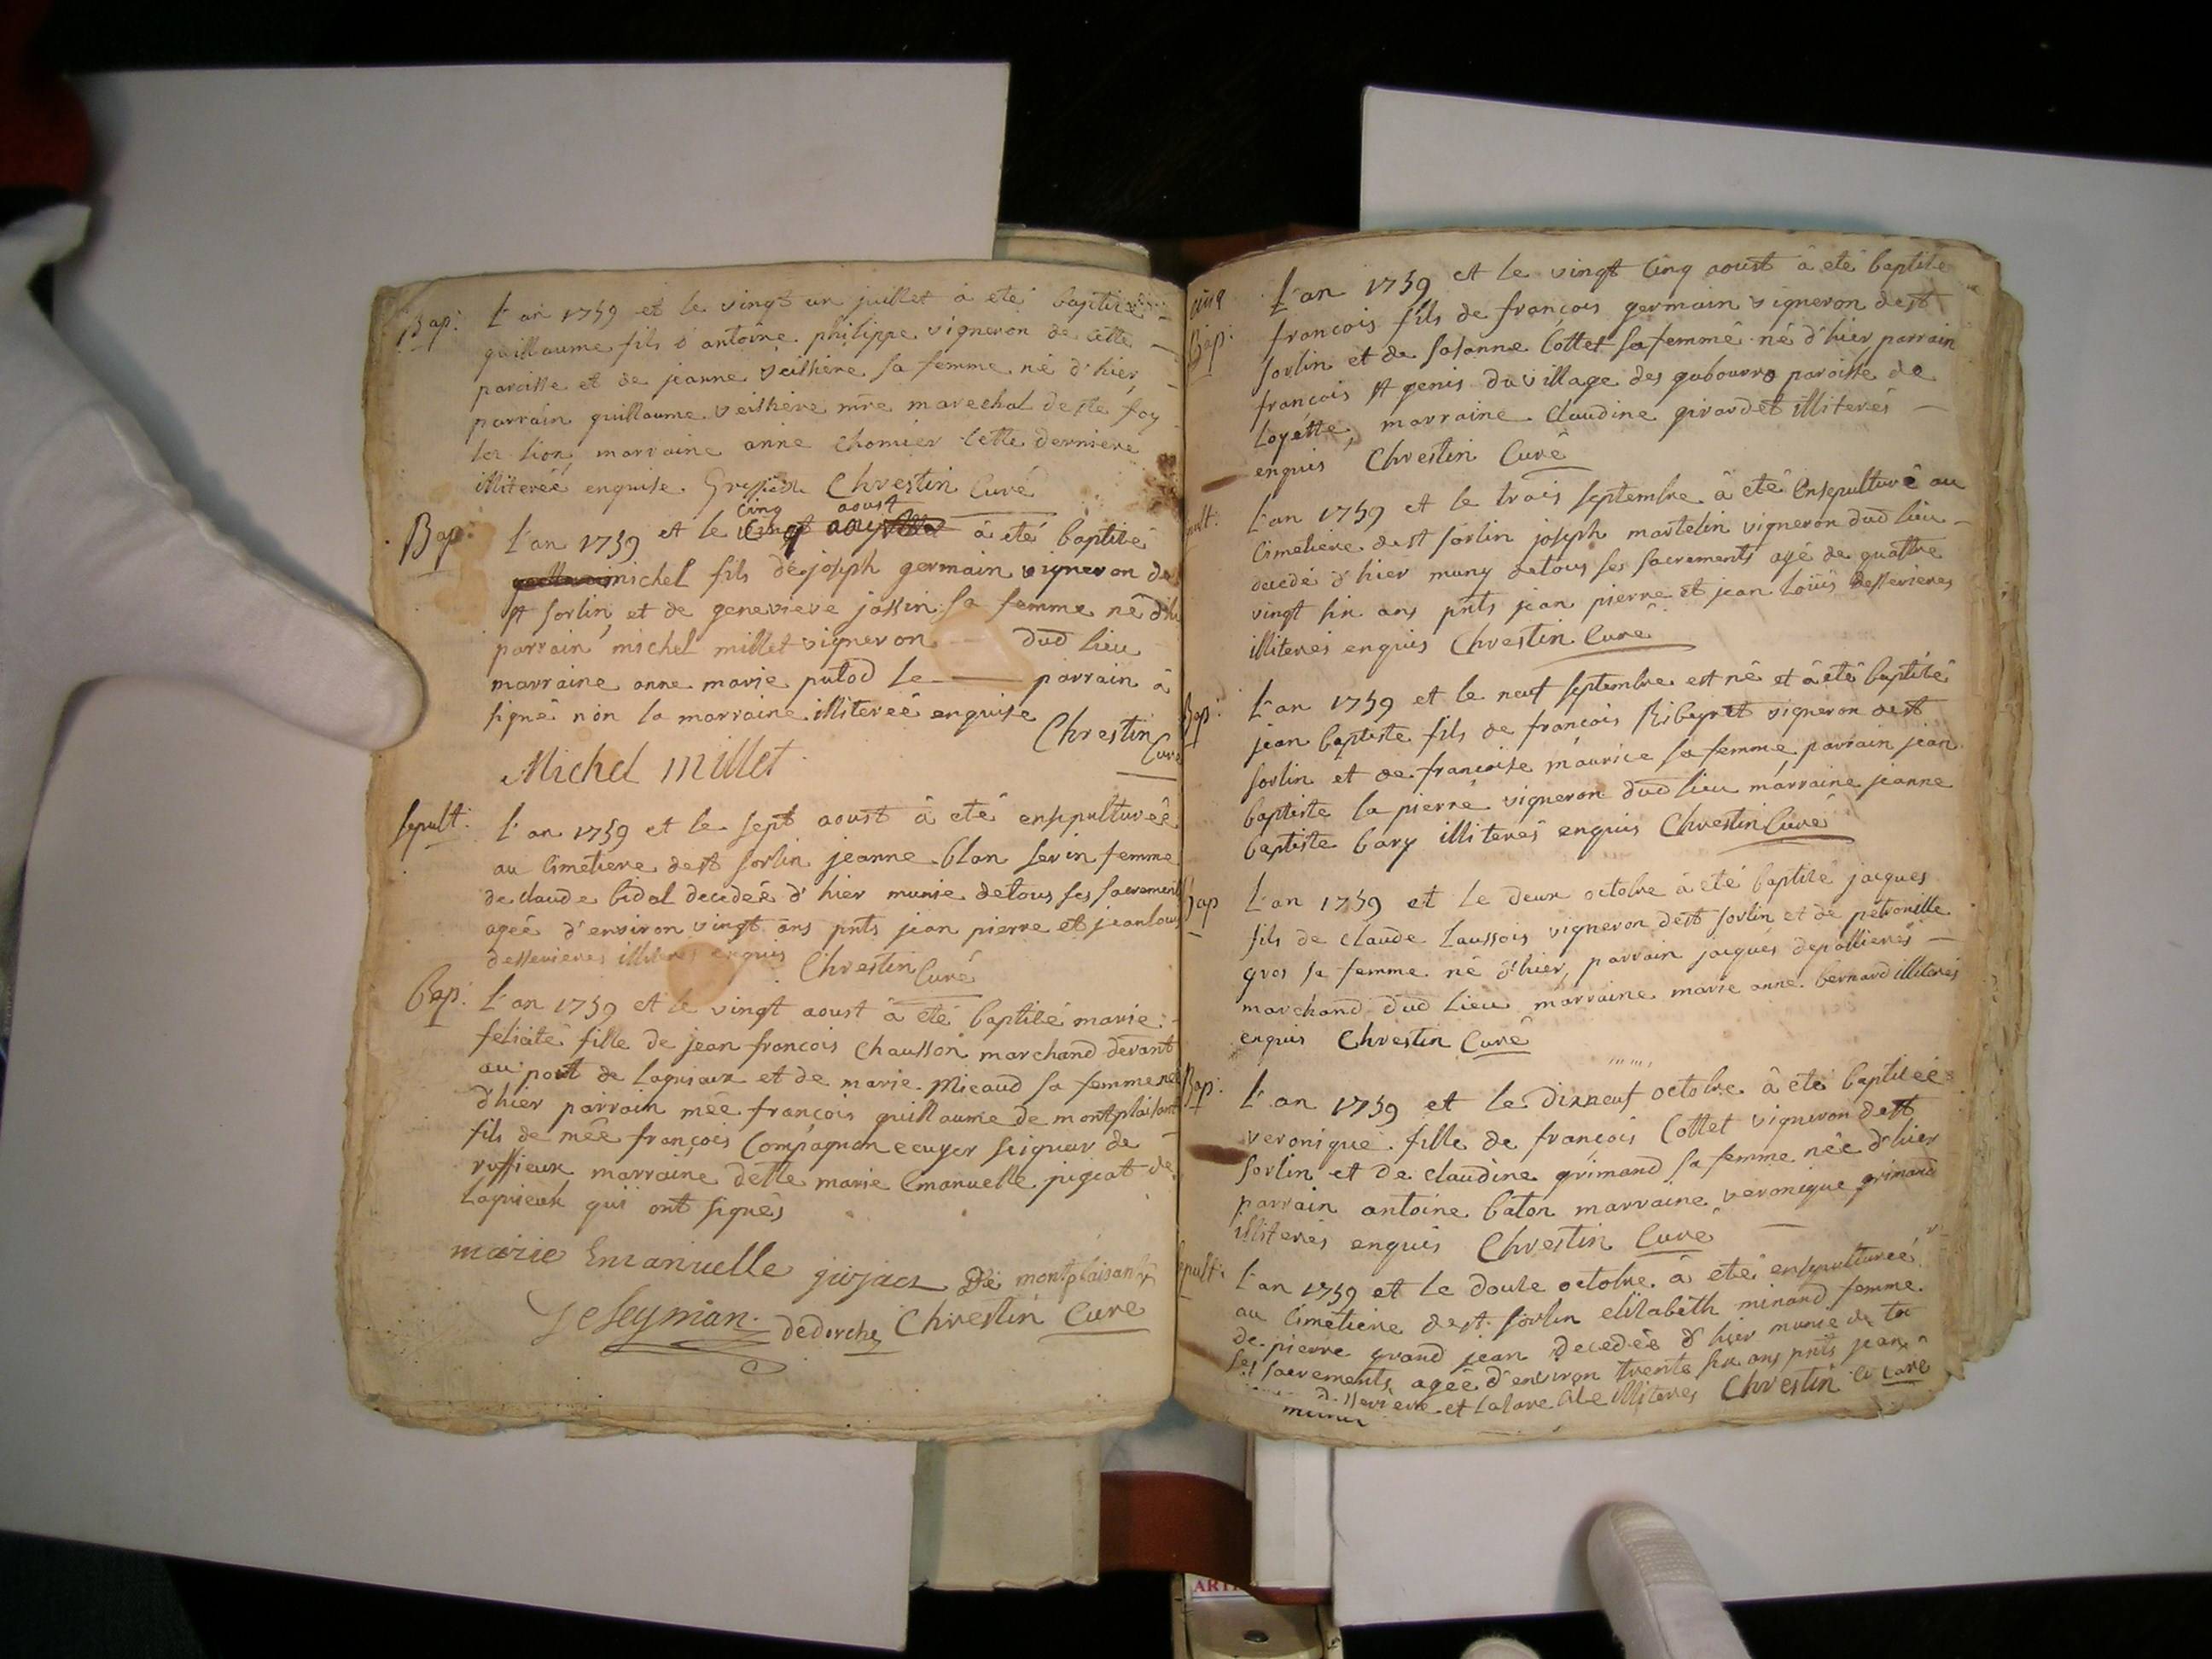 Bap:
L'an 1759 et le vingt un juillet à eté baptisé
guillaume fils d'antoine philippe vigneron de cette
paroisse et de jeanne veilhere sa femme né d'hier
parrain guillaume veilhere mre marechal de ste foy
les lion, marraine anne chomier cette derniere
illitereé enquise. Chrestin Curé
Bap:
cinq aoust
L'an 1759 et le à eté baptisé
michel fils de joseph germain vigneron de
st sorlin, et de genevieve jassin sa femme né d'hi
parrain michel millet vigneron dud lieu
marraine anne marie putod le parrain à
signé non la marraine illitereé enquise
Chrestin
Curé
Michel Millet
sepult:
L'an 1759 et le sept aoust à eté ensepultureé
au cimetiere de st sorlin jeanne blan serin femme
de claude bidal decedeé d'hier munie de tous ses sacrement
ageé d'environ vingt ans pnts jean pierre et jean louis
desserieres illiteres enquis Chrestin Curé
Bap:
L'an 1759 et le vingt aoust à eté baptisé marie
felicité fille de jean francois Chausson marchand devant
au port de lagnieux et de marie Micaud sa femme née
d'hier parrain mée francois guillaume de montplaisant
fils de mée françois Compagnon ecuyer seigneur de
ruffieux marraine delle marie Emanuelle pigiat de
Lagnieux qui ont signés
marie Emanuelle De montplaisant
dedorches Chrestin Curé
Bap:
L'an 1759 et le vingt cinq aoust à eté baptisé
francois fils de françois germain vigneron de st
sorlin et de susanne Cottet sa femme né d'hier parrain
francois st genis du village des gabourro paroisse de
Loyette, marraine Claudine girardet illiterés
enquis Chrestin Curé
L'an 1759 et le trois septembre à eté ensepulturé au
Cimetiere de st sorlin joseph martelin vigneron dud lieu
decedé d'hier muny de tous ses sacrements agé de quattre
vingt six ans pnts jean pierre et jean louis desserieres
illiterés enquis Chrestin Curé
Bap:
L'an 1759 et le neuf septembre est né et à eté baptisé
jean baptiste fils de françois Ribeyret vigneron de st
sorlin et de francoise maurice sa femme, parrain jean
baptiste la pierre vigneron dud lieu marraine jeanne
baptiste bary illiterés enquis Chrestin Curé
Bap
L'an 1759 et le deux octobre à eté baptisé jacques
fils de claude Laussois vigneron de st sorlin et de petronille
gros sa femme né d'hier, parrain jacques depollieres
marchand dud lieu marraine marie anne bernard illiterés
enquis Chrestin Curé
Bap:
L'an 1759 et le dixneuf octobre à eté baptiseé
veronique fille de françois Cottet vigneron de st
sorlin et de claudine grimand sa femme née d'hier
parrain antoine baton marraine veronique grimand
illiterés enquis Chrestin Curé
sepult:
L'an 1759 et le douse octobre à eté ensepultureé
au cimetiere de st sorlin elisabeth minand femme
de pierre grand jean decedeé d'hier munie de to
ses sacrements ageé d'environ trente six ans pnts jean
et illiteres Chrestin Curé